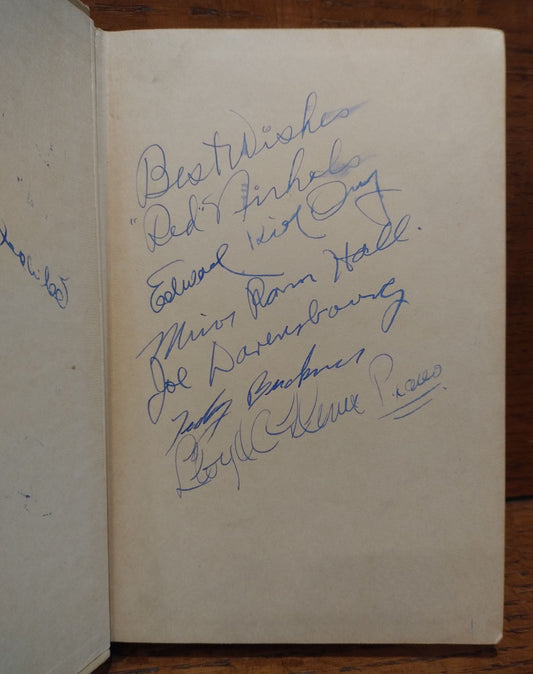 Best Wishes
"Red" Nichols
Edward Kid Ory
Minor Ram Hall.
Joe Darensbourg
Teddy Buckner
Lloyd C Piano